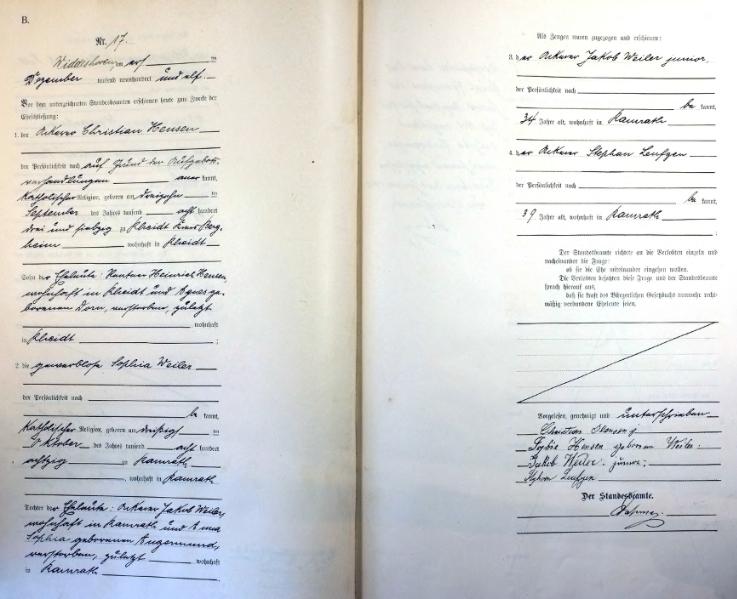 B.
Nr. 17.
Widdeshoven, am elf ten
Dezember tausend neunhundert und elf.
Vor dem unterzeichneten Standesbeamten erschienen heute zum Zwecke der
Eheschließung:
1. der Ackerer Christian Hensen
der Persönlichkeit nach auf Grund der Aufgebots-
verhandlungen aner kannt,
katholischer Religion, geboren am dreizehn ten
September des Jahres tausend acht hundert
drei und siebzig zu Rheidt Kreis Berg-
heim, wohnhaft in Rheidt
Sohn der Eheleute: Heinrich Hensen,
wohnhaft in Rheidt und Agnes ge-
borenen Dorn, verstorben, zuletzt
wohnhaft
in Rheidt ;
2. die gewerblose Sophia Weiler
der Persönlichkeit nach
be kannt,
katholischer Religion, geboren am dreißigst en
Oktober des Jahres tausend acht hundert
achtzig zu Ramrath
, wohnhaft in Ramrath
Tochter der Eheleute: Ackerer Jakob Weiler,
wohnhaft in Ramrath und Anna
Sophia geborenen Angermund,
verstorben, zuletzt wohnhaft
in Ramrath
Als Zeugen waren zugezogen und erschienen:
3. der Ackerer Jakob Weiler junior.
der Persönlichkeit nach
be kannt,
34 Jahre alt, wohnhaft in Ramrath
4. der Ackerer Stephan Leufgen
der Persönlichkeit nach
be kannt,
39 Jahre alt, wohnhaft in Ramrath
Der Standesbeamte richtete an die Verlobten einzeln und
nacheinander die Frage:
ob sie die Ehe miteinander eingehen wollen.
Die Verlobten bejahten diese Frage und der Standesbeamte
sprach hierauf aus,
daß sie kraft des Bürgerlichen Gesetzbuchs nunmehr recht-
mäßig verbundene Eheleute seien.
Vorgelesen, genehmigt und unterschrieben
Christian Hensen
Hensen geborene Weiler.
Jakob Weiler junior.
Stephan Leufgen
Der Standesbeamte.